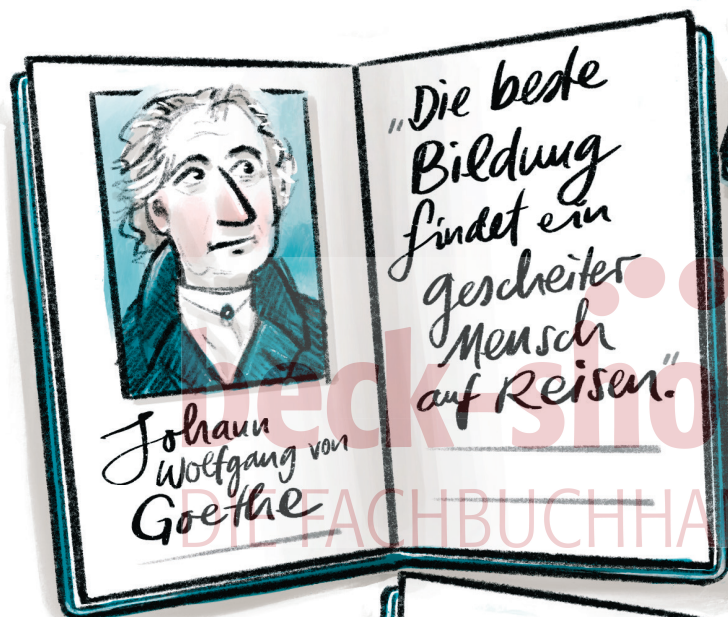 Johann
Wolfgang von
Goethe
„Die beste
Bildung
findet ein
gescheiter
Mensch
auf Reisen."
beck-sho
DIE FACHBUCHHA